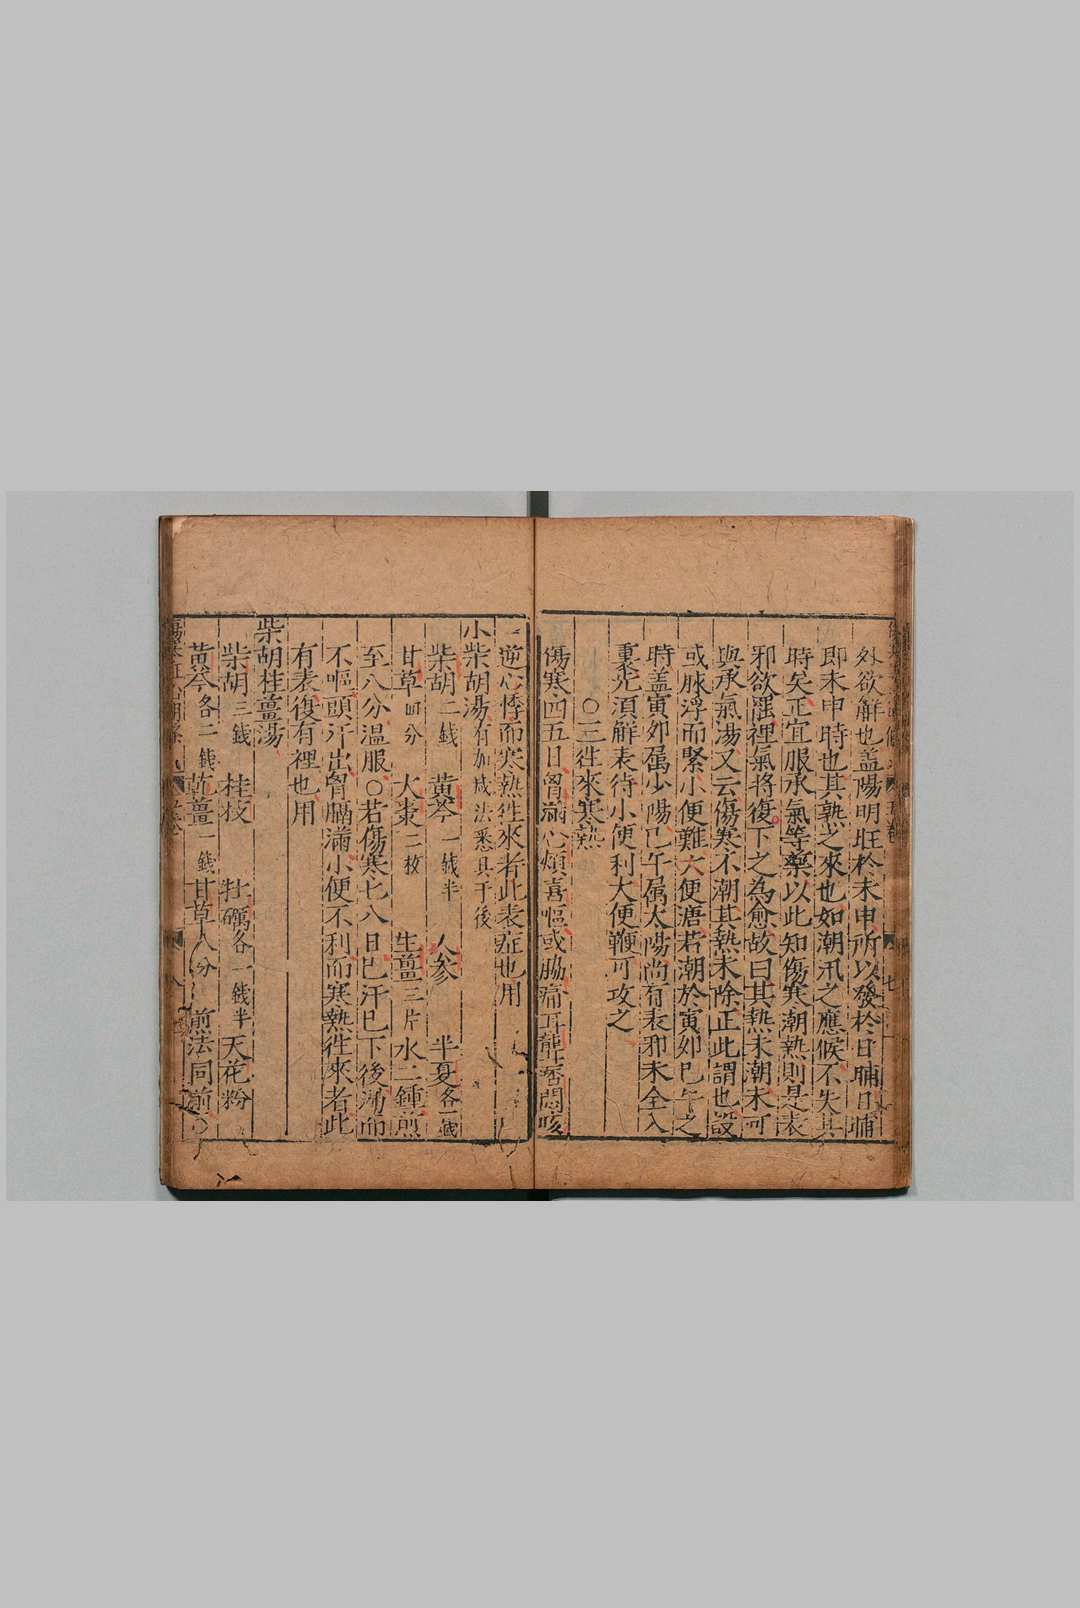 外欲觧也盖陽明旺於未申所以發於日晡日晡
即未申時也其熱之來也如潮汛之應候不失其
時矣正宜服承氣等藥以此知傷寒潮熱則是表
邪欲罷裡氣將復下之為愈故曰其熱未潮未可
與承氣湯又云傷寒不潮其熱未除正此謂也設
或脉浮而緊小便難大便溏若潮於寅卯巳午之
時盖寅卯屬少陽巳午属太陽尚有表邪未全入
裏先須解表待小便利大便鞕可攻之
〇三徃來寒熱
傷寒四五日胷滿心煩喜嘔或脇痛耳聾痞悶咳
逆心悸而寒熱徃來者此表症也用
小柴胡湯有加减法悉具于後
柴胡二錢 黄芩一錢半 人參 半夏各一錢
甘草四分 大棗二枚 生薑三片 水二鍾煎
至八分温服〇若傷寒七八日已汗已下後渴而
不嘔頭汗出胷膈滿小便不利而寒熱徃來者此
有表復有裡也用
柴胡桂薑湯
柴胡三錢 桂枝 牡礪各一錢半 天花粉
黄芩各二錢 乾薑一錢 甘草八分 煎法同前〇